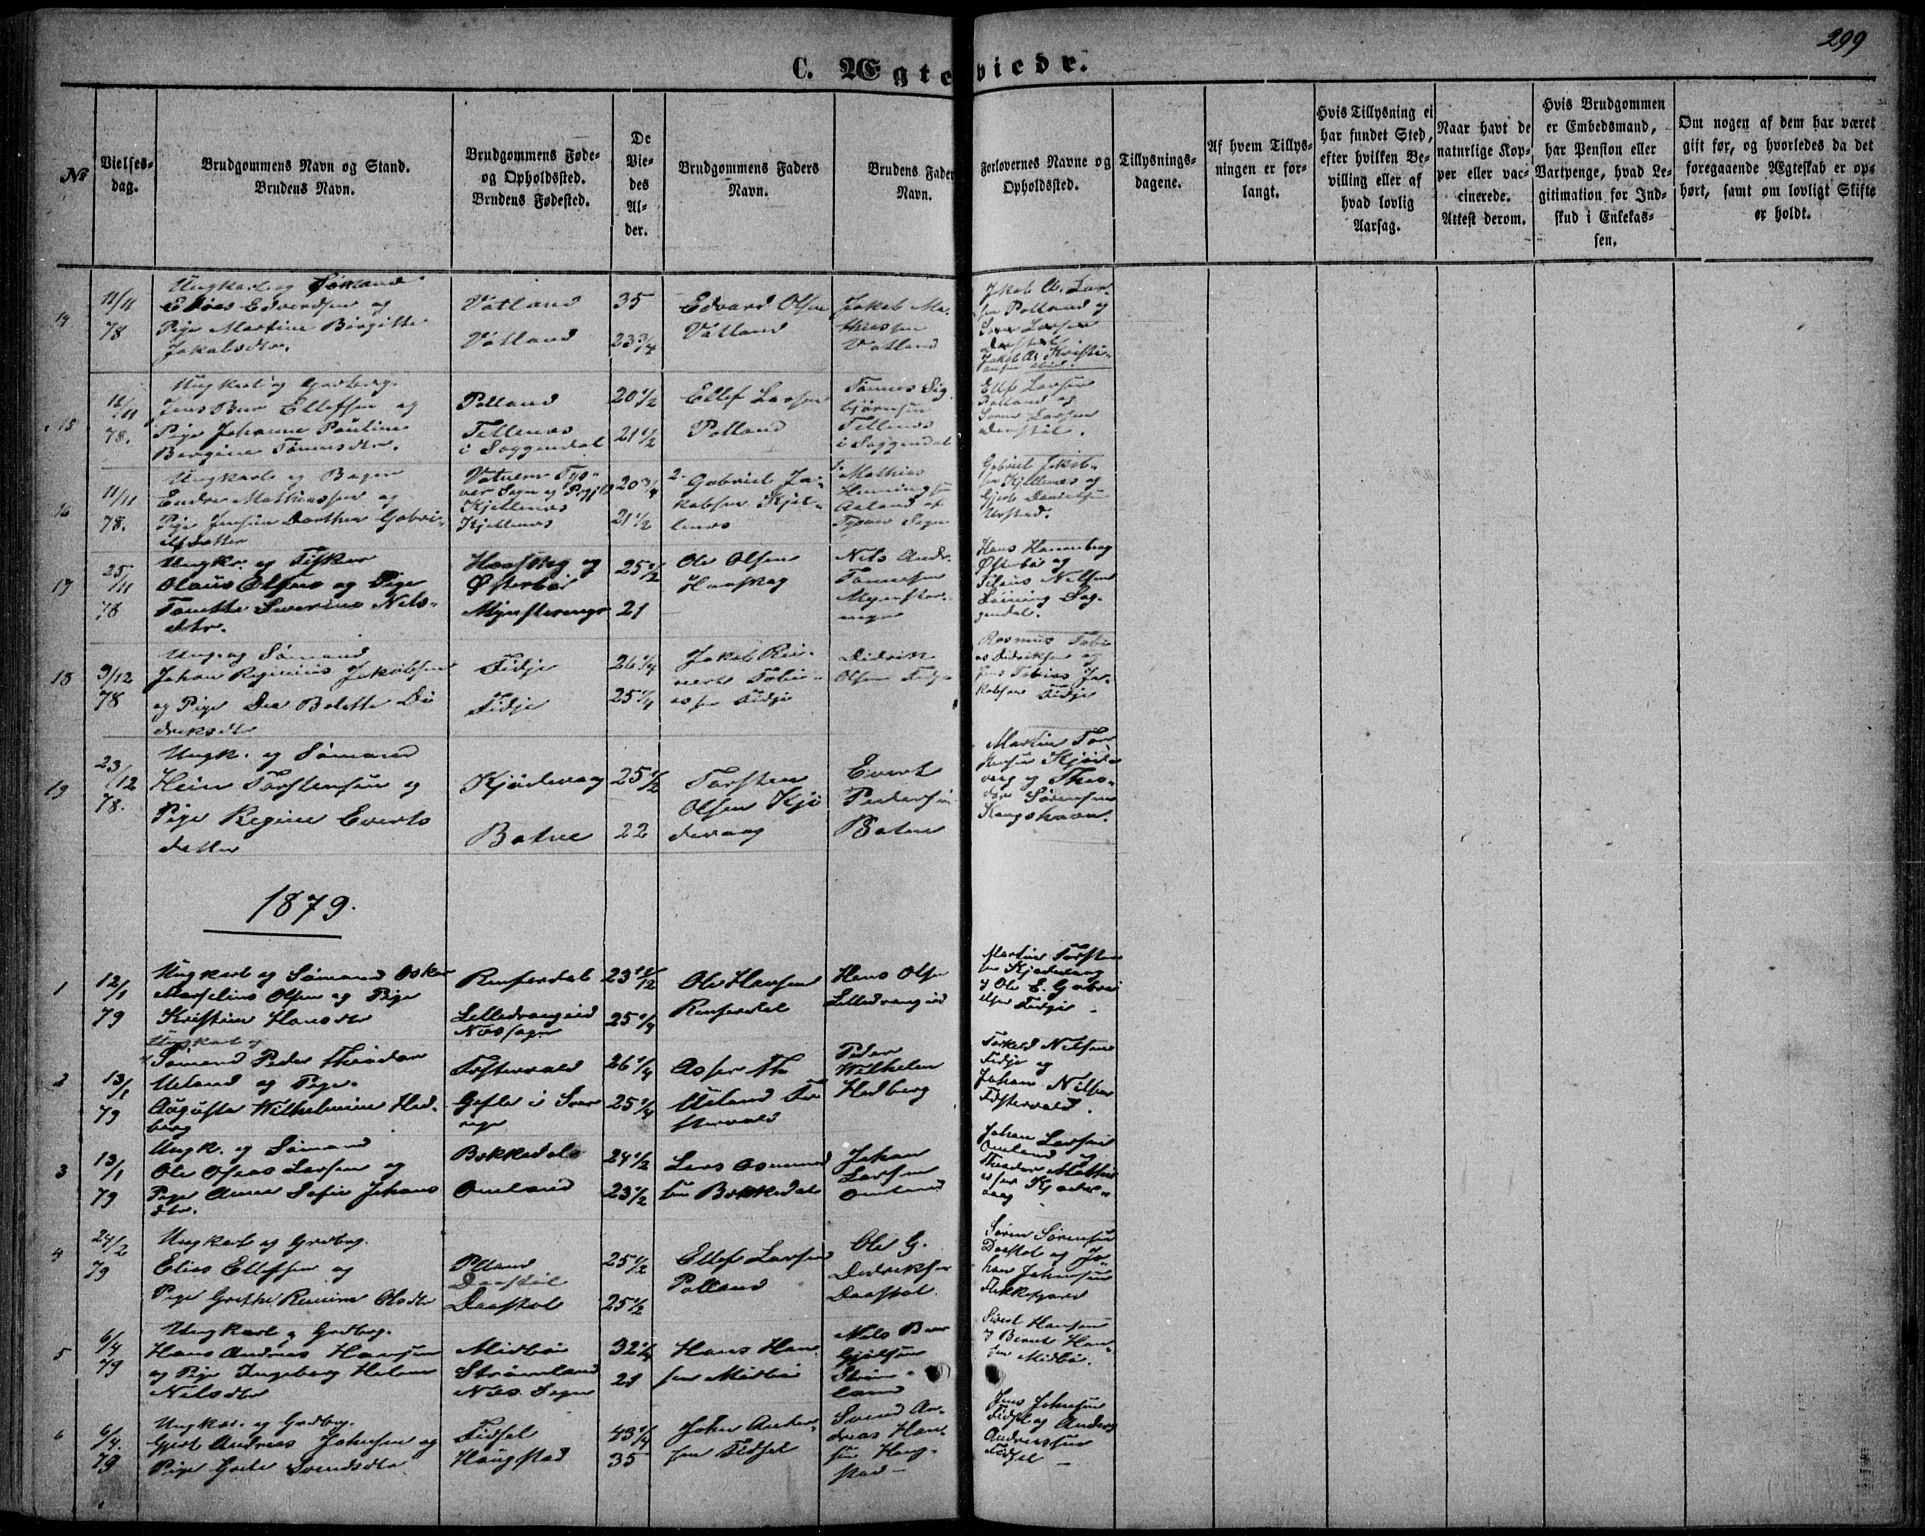 299
C. Ægteviede.
№
Vielses-
dag.
Brudgommens Navn og Stand.
Brudens Navn.
Brudgommens Føde-
og Opholdssted.
Brudens Fødested.
De
Vie-
des
Al-
der.
Brudgommens Faders
Navn.
Brudens Fader
Navn.
Forlovernes Navne og
Opholdssted.
Tillysnings-
dagene.
Af hvem Tillys-
ningen er for-
langt.
Hvis Tillysning ei
har fundet Sted,
efter hvilken Be-
villing eller af
hvad lovlig
Aarsag.
Naar havt de
naturlige Kop-
per eller vac-
cinerede.
Attest derom.
Hvis Brudgommen
er Embedsmand,
har Pension eller
Vartpenge, hvad Le-
gitimation for Ind-
skud i Enkekas-
sen.
Om nogen af dem har været
gift før, og hvorledes da det
foregaaende Ægteskab er op-
hørt, samt om lovligt Skifte
er holdt.
14
11/11
78
Ungkarl og Sømand
Edvardsen og
Pige Martine Birgitte
Jakobsdtr.
Vatland
Vatland
35
23 3/4
Edvard Olsen
Vatland
Jakob Ma-
thiesen
Vatland
Polland og
Søren Larsen
15
11/11
78.
Ungkarl og Grdbrg.
Jens Buer Ellefsen og
Pige Johanne Pauline
Bergine Tønnesdtr.
Polland
Tellenæs
i Soggendal
20 1/2
21 1/2
Ellef Larsen
Polland
Tønnes Sig-
bjørnsen
Tellenæs
i Soggendal
Ellef Larsen
Polland og
Søren Larsen
16
11/11
78.
Ungkarl og Bager
Endre Mathiassen og
Pige Jensine Dorthea Gabri-
elsdatter
Kjellenæs
Kjellenæs
20 3/4
21 1/2
Gabriel Ja-
kobsen Kjel-
lenæs
Mathias
Henningsen
Aaland af
Tysvær Sogn
Gabriel Jakob-
sen Kjellenæs og
Gjert Danielsen
17
25/11
78
Ungkr. og Fisker
Olaus Olsen og Pige
Tonette Severine Nels-
dtr.
Haaskag og
Østerbø
Mønstervægr
25 1/2
21
Ole Olsen
Haaskag
Nils Andr.
Tønnesen
Hans Hanneberg
Østerbø og
Nilsen
Sog-
gendal.
18
9/12
78
Ung. og Sømand
Johan Regnius Jakobsen
og Pige Dea Bolette Di
driksdtr
Fidje
Fidje
26 1/4
25 1/4
Jakob Rei-
nert Tobi-
assen Fidje
Didrik
Olsen Fidje
Rasmus Tobi
as Didriksen og
Jens Tobias Ja-
kobsen Fidje
19
23/12
78.
Ungk. og Sømand
Hein Torstensen og
Pige Regine Everts
datter
Kjødevaag
Batne
25 1/2
22
Torsten
Olsen Kjø
devaag
Evert
Pedersen
Batne
Martin Tor
stensen Kjøde
vaag og Theo-
dor Sørensen
Kongshavn.
1879.
1
12/1
79
Ungkarl og Sømand Oskar
Marselius Olsen og Pige
Kristine Hansdtr
Renserdal
Lelledrangeid
Næs sogn
23 1/2
25 1/4
Ole Hansen
Renserdal
Hans Olsen
Lelledrangeid
Martin Torsten
sen Kjødevaag
og Ole E. Gabri
elsen Fidje
2
13/1
79
Ungkarl og
Sømand Peder Theodor
Ueland og Pige
Augusta Wilhelmine Hed-
berg
Festervold
Gefle i Sver
rige
26 1/4
25 1/4
Asser Th
Ueland Fe
stervold
Peder
Wilhelm
Hedberg
Torkild Nilsen
Fidje og
Johan Nilsen
Festervold.
3
13/1
79
Ungk. og Sømand
Ole Oseas Larsen og
Pige Anne Sofie Johans
dtr.
Bokkedal
Omland
24 1/2
23 1/2
Lars Osmund
sen Bokkedal
Johan
Larsen
Omland
Johan Larsen
Omland og
Theodor Mathi
assen Kjøde-
vaag
4
24/2
79
Ungkarl og Grdbrg.
Elias Ellefsen og
Pige Grethe Remine Olsdtr
Polland
Daastøl
Daastøl
25 1/2
25 1/2
Ellef Larsen
Polland
Ole G.
Didriksen
Daastøl
Søren Sørensen
Daastøl og Jo-
han Johnsen
Flikkefjord
5
6/4
79
Ungkarl og Grdbrg.
Hans Andreas Hansen
og Pige Ingeborg Helene
Nilsdtr
Midbø
Strømland
Næs Sogn
32 1/4
21
Hans Han-
sen Midbø
Nils Buer
Gjølsen
Strøm-
land
Sivert Hansen
og Bernt Han-
sen Midbø.
6
6/4.
79
Ungkar. og Grdbrg.
Gert Andreas Johnsen og
Pige Svendsdtr
Fidsel
Haugstad
43 1/4
35
John Ander-
sen Fidsel
Svend An-
dreas Han-
sen Haug-
stad
Jens Johnsen
Fidsel og Anders
Andersen
Fidsel